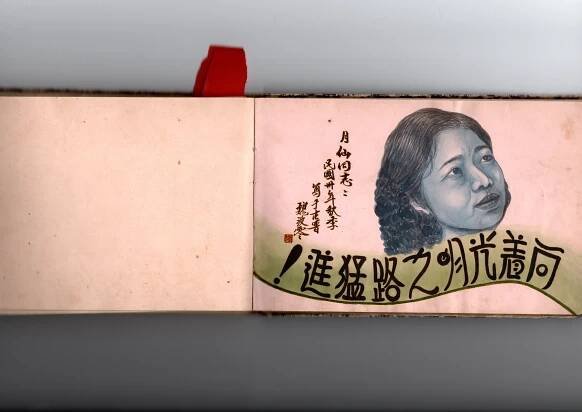 月仙同志：
民國卅年秋季
寫于吉
向着光明之路猛進！